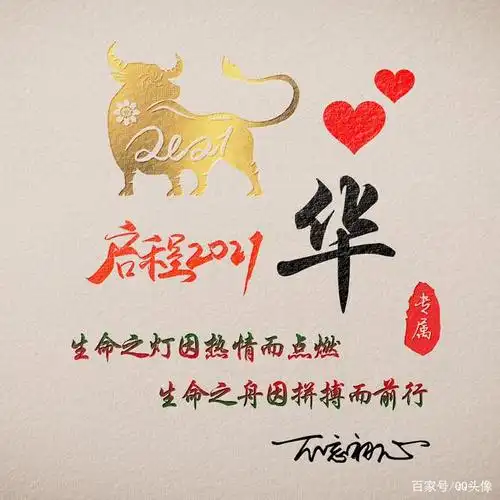 2021
启程2021
华
专属
生命之灯因热情而点燃
生命之舟因拼搏而前行
不忘初心
百家号/QQ头像